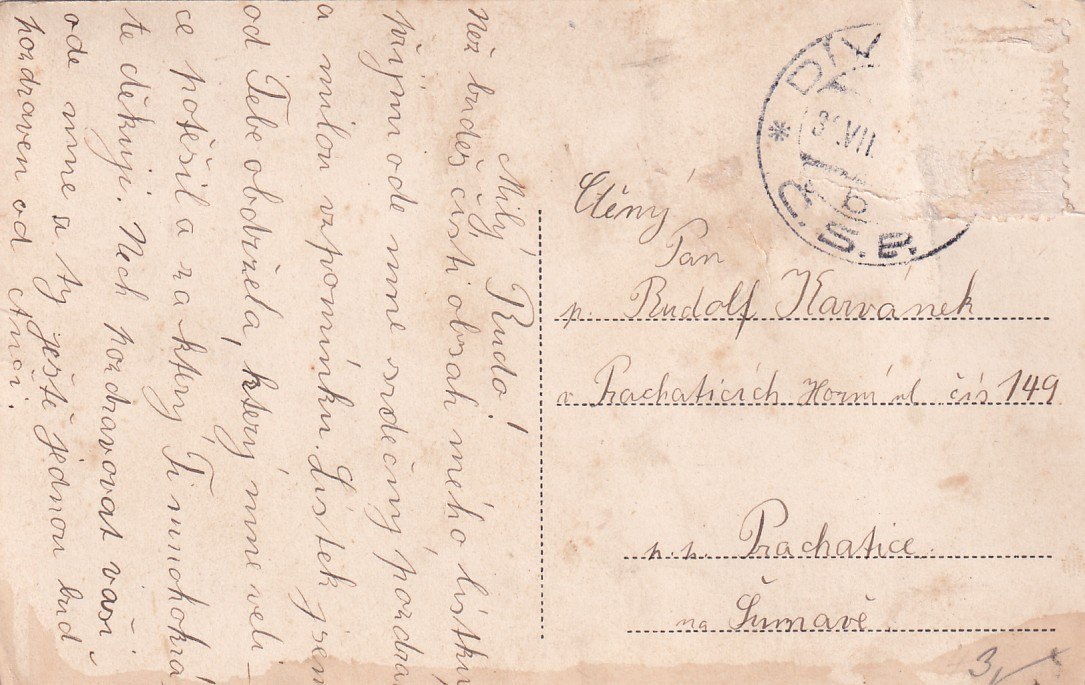 Milý Rudo!
než budeš čísti obsah mého lístku,
přijmi ode mne srdečný pozdra
a milou vzpomínku. Lístek jsem
od Tebe obdržela, který mne veli-
ce potěšil a za který Ti mnokokrá
te děkuji. Nech pozdravovat vaši
ode mne a ty ještě jednou buď
pozdraven od
Ctěný
Pán
p. Rudolf Karvánek
v Prachaticích Horní ul čís 149
p.p. Prachatice
na Šumavě
DIV
VII
b
* Č.S.P.
3,